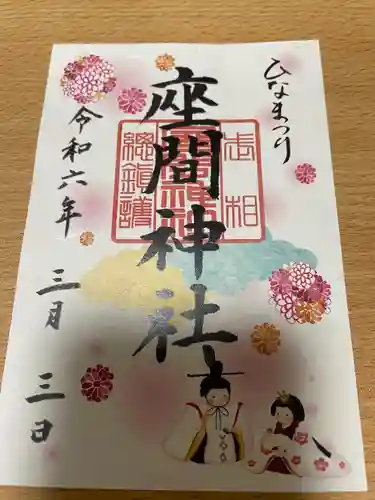 ひなまつり
座間神社
相武
總鎮護
令和六年
三月
三日